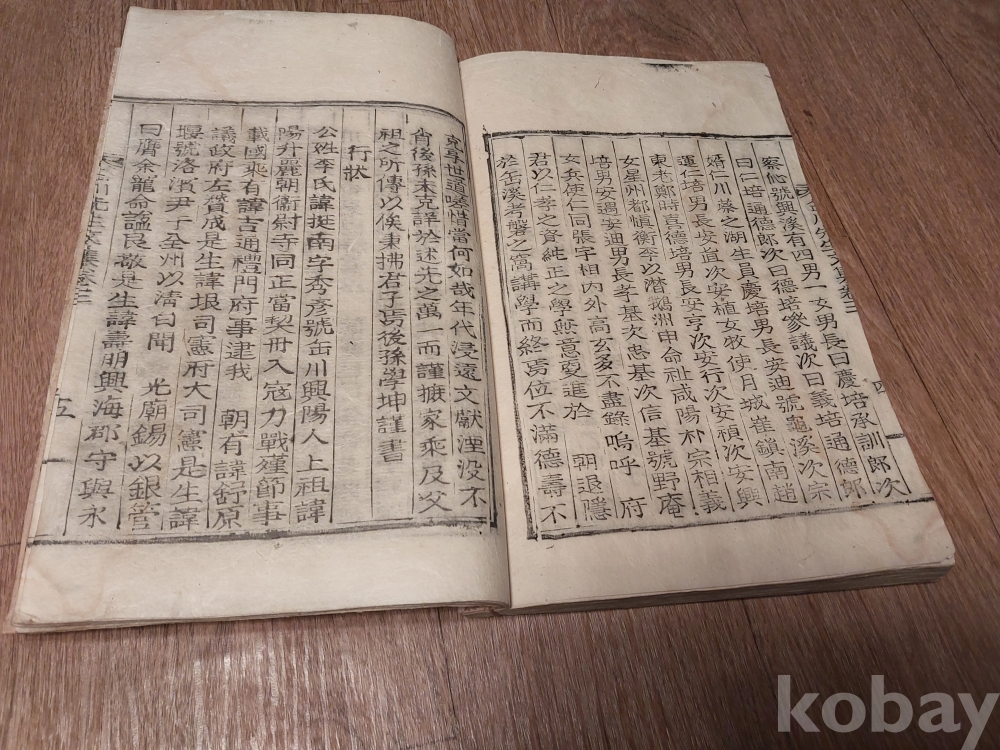 察心號興溪有四男一女男長曰慶培承訓郎次
曰仁培通德郎次曰德培篆議次曰義培通德郎
婿仁川蔡之湖生員慶培男長安迪號龜溪次宗
蓮仁培男長安直次安植女牧使月城崔鎭南趙
東老鄭時喜德培男長安亨次安行次安禎次安興
女星州都愼衡李以濳鵝洲申命祉咸陽朴宗相義
培男安遇安迪男長孝基次忠基次信基號野庵
女兵使仁同張宇相內外高玄多不盡錄嗚呼 府
君以仁孝之資純正之學無意嬰進於 朝退隱
於缶溪考磐之窩講學而終焉位不滿德壽不
四
克享世道嗟惜當何如哉年代浸遠文獻湮没不
肖後孫末克詳於述先之萬一而謹摭家乘及父
祖之所傳以俟秉拂君子焉後孫學坤謹書
行狀
公姓李氏諱挺南字秀彥號缶川興陽人上祖諱
陽升麗朝衛尉寺同正當契丹入寇力戰殫節事
載國乘有諱吉通禮門府事逮我 朝有諱舒原
議政府左贊成是生諱垠司憲府大司憲是生諱
堰號洛濱尹于全州以淸白聞 光廟錫以銀管
曰膺余龍命謚良敬是生諱壽明興海郡守與永
川先生文集卷三
五
kobay